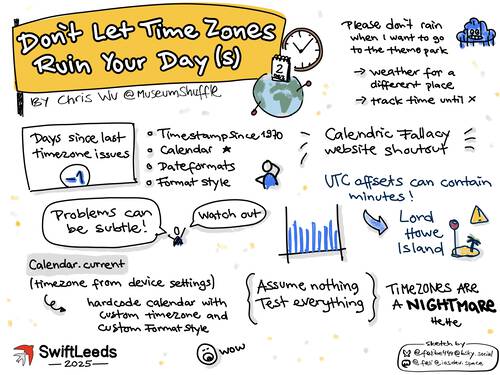 Don't Let Time Zones
Ruin Your Day(s)
BY Chris Wu @MuseumShuffle
2
Please don't rain
when I want to go
to the theme park
→ weather for a
different place
→ track time until x
Days since last
timezone issues
-1
• Timestamp since 1970
• Calendar ★
• Dateformats
• Format style
Calendric Fallacy
website shoutout
UTC offsets can contain
minutes!
Lord
Howe
Island
Problems can
be subtle!
watch out
Calendar.current
(timezone from device settings)
hardcode calendar with
custom timezone and
custom FormatStyle
Assume nothing
Test everything
TIMEZONES ARE
A NIGHTMARE
Hehe
wow
SwiftLeeds
2025
sketch by